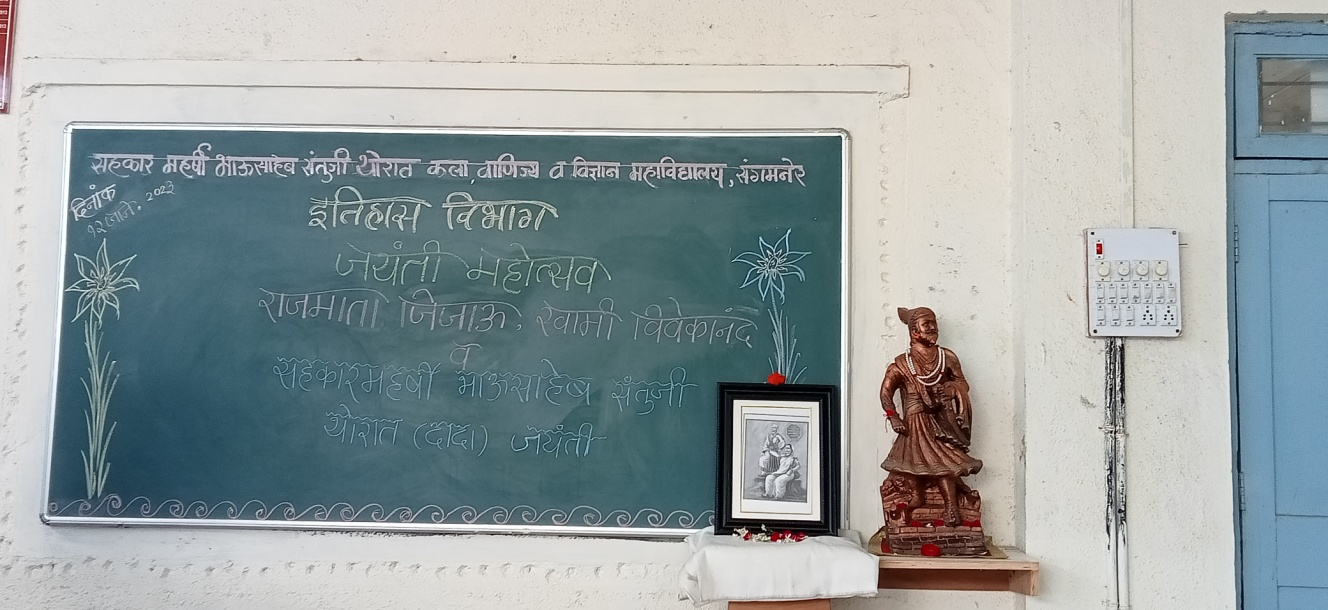 सहकार महर्षी भाऊसाहेब संतुजी थोरात कला, वाणिज्य व विज्ञान महाविद्यालय, संगमनेर
दिनांक
१२ जाने. २०२३
इतिहास विभाग
जयंती महोत्सव
राजमाता जिजाऊ, स्वामी विवेकानंद
व
सहकारमहर्षी भाऊसाहेब संतुजी
थोरात (दादा) जयंती